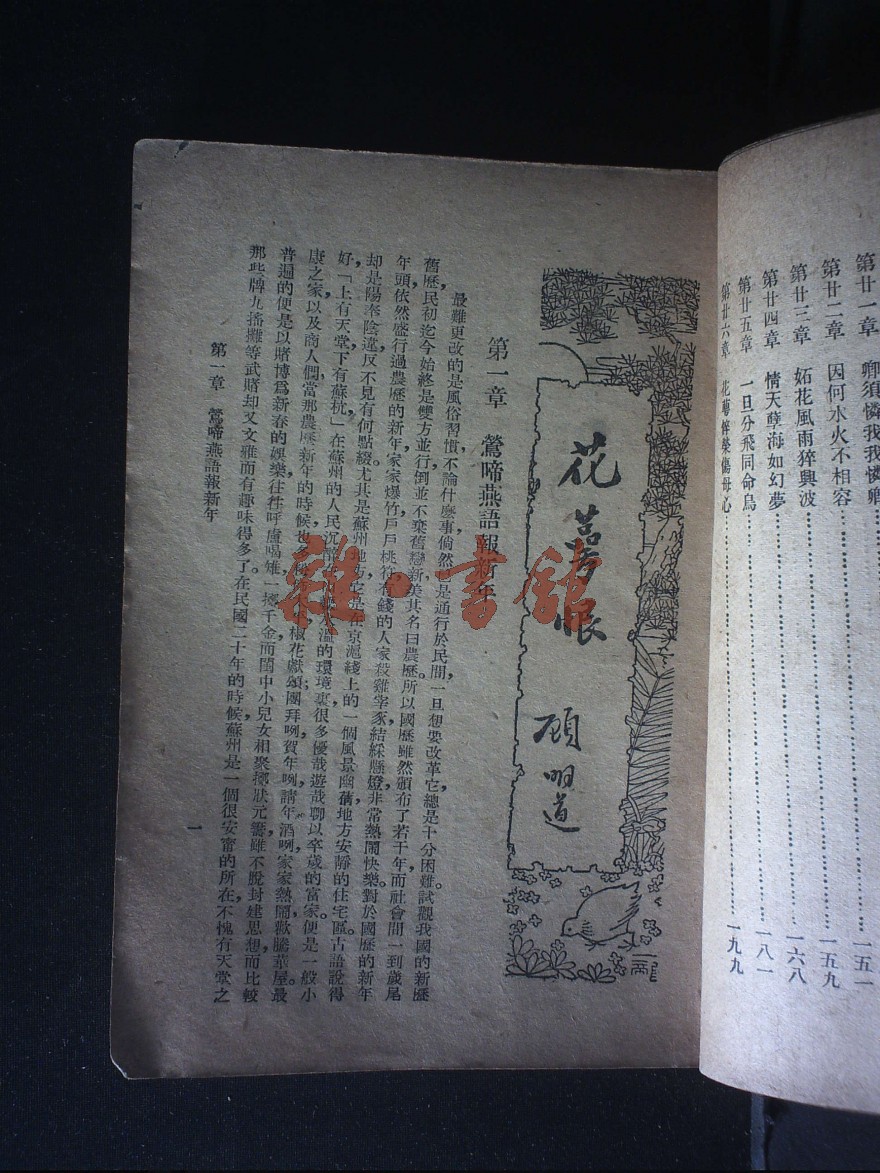 第廿一章 卿須憐我我憐卿……一五一
第廿二章 因何水火不相容……一五九
第廿三章 妬花風雨猝興波……一六八
第廿四章 情天孽海如幻夢……一八一
第廿五章 一旦分飛同命鳥
第廿六章 母心……一九九
花萼恨
顧明道
第一章 鶯啼燕語報新年
最難更改的是風俗習慣，不論什麼事倘然是通行於民間，一旦想要改革它，總是十分困難。試觀我國的新歷
舊歷民初迄今始終是雙方並行，倒並不棄舊戀新，美其名曰農歷。所以國歷雖然頒布了若干年，而社會間一到歲尾
年頭，依然盛行過農歷的新年，家家爆竹，戶戶桃符，有錢的人家殺雞宰豕，結綵懸燈，非常熱鬧快樂。對於國歷的新年
却是陽奉陰違，反不見有何點綴。尤其是蘇州地方，它是在京滬綫上的一個風景幽蒨地方，安靜的住宅區。古語說得
好，「上有天堂，下有蘇杭，」在蘇州的人民沉醉在溫的環境裏，很多優哉遊哉，聊以卒歲的富家，便是一般小
康之家以及商人們，當那農歷新年的時候，也多椒花獻頌，團拜咧，賀年咧，請年酒咧，家家熱鬧，歡騰華屋。最
普遍的便是以賭博爲新春的娛樂，往往呼盧喝雉，一擲千金。而閨中小兒女相聚擲狀元籌，雖不脫封建思想，而比較
那些牌九搖攤等武賭却又文雅而有趣味得多了。在民國二十年的時候，蘇州是一個很安甯的所在，不愧有天堂之
第一章 鶯啼燕語報新年
一
雜·書舘